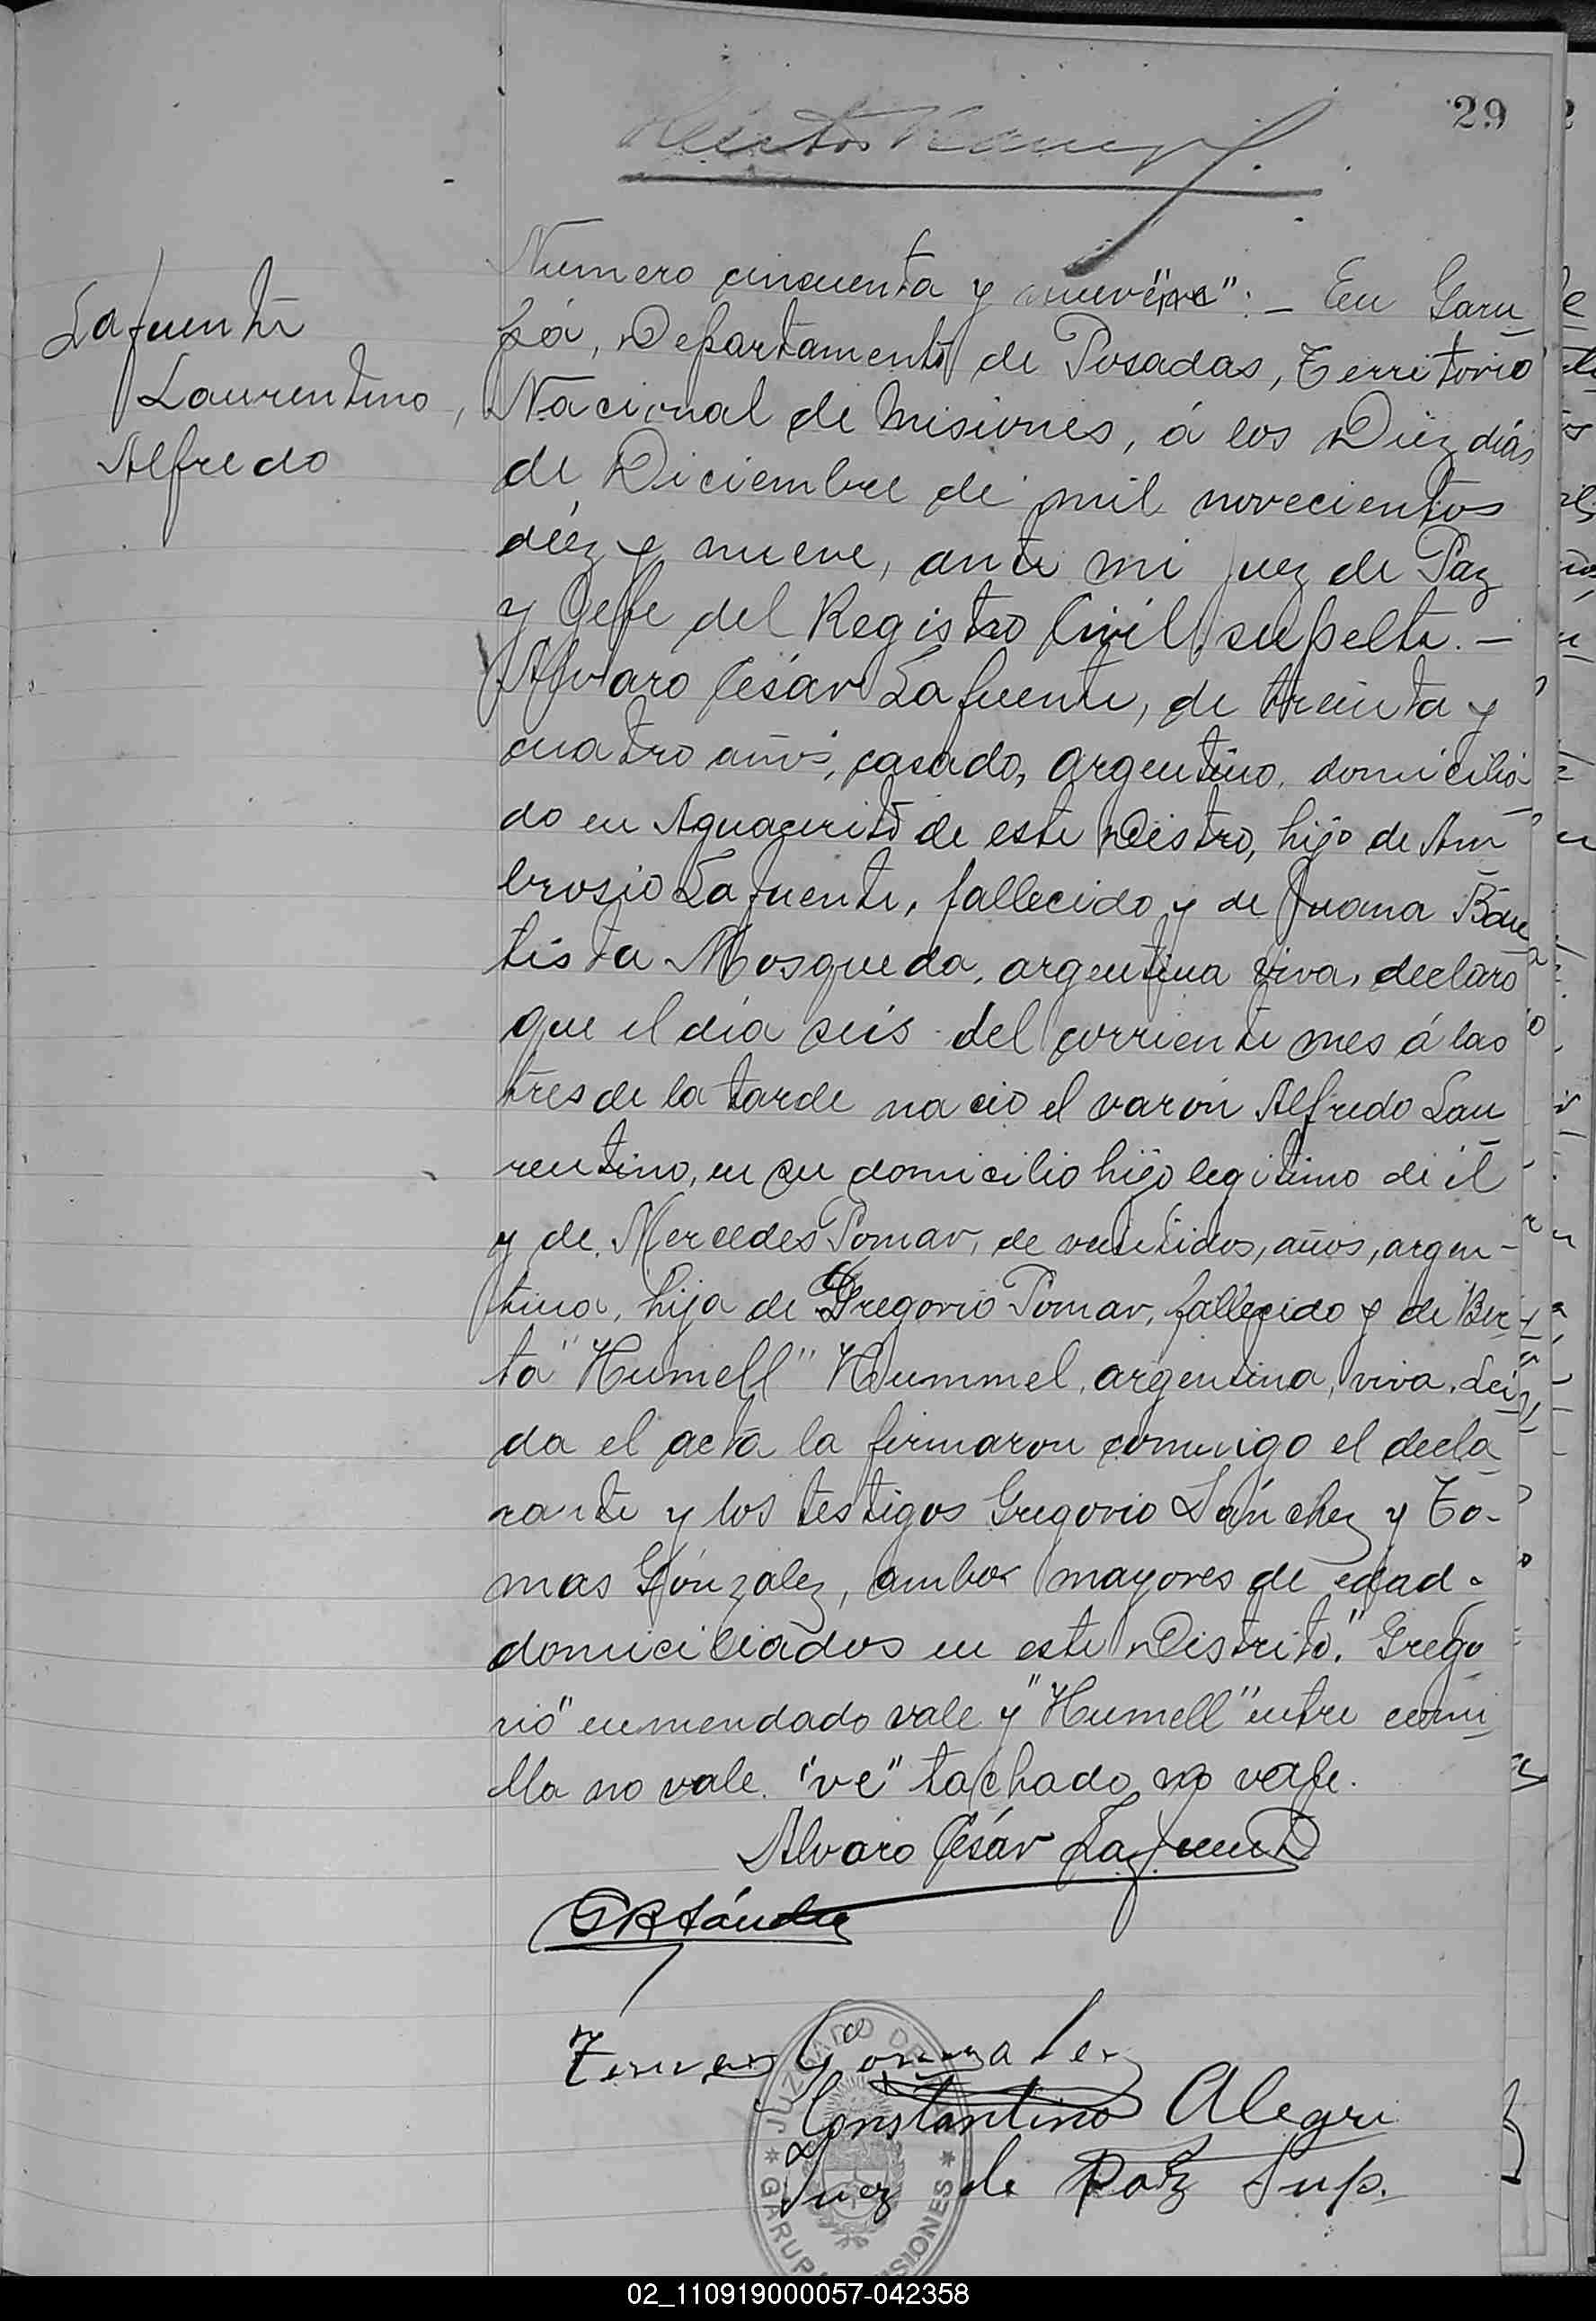 29
Lafuente
Laurentino,
Alfredo
Numero cincuenta y nueve "ve": - En Garu
pá, Departamento de Posadas, Territorio
Nacional de Misiones, á los Diéz días
de Diciembre de mil novecientos
diéz y nueve, ante mi Juez de Paz
y Gefe del Registro Civil, suplente. -
Alvaro César Lafuente, de treinta y
cuatro años, casado, argentino, domicilia
do en Aguacerito de este Distro, hijo de Am
brosio Lafuente, fallecido y de Juana Bau
tista Mosqueda, argentina viva, declaro
que el día seis del corriente mes á las
tres de la tarde nacio el varón Alfredo Lau
rentino, en su domicilio hijo legitimo de él
y de Mercedes Pomar, de veintidos, años, argen-
tina, hija de Gregorio Pomar, fallecido y de Ber
ta "Humell" Hummel, argentina, viva. Lei
da el acta la firmaron conmigo el decla
rante y los testigos Gregorio Sánchez y To-
mas Gónzalez, ambos mayores de edad.
domiciliados en este Distrito." Grego
rio" enmendado vale y "Humell" entre comi
lla no vale. "ve" tachado no vale.
Alvaro César Lafuente
GR Sánchez
Gonzalez
Constantino Alegre
Juez de Paz Sup.
JUZGADO DE
GARUP
MISIONES
02_110919000057-042358